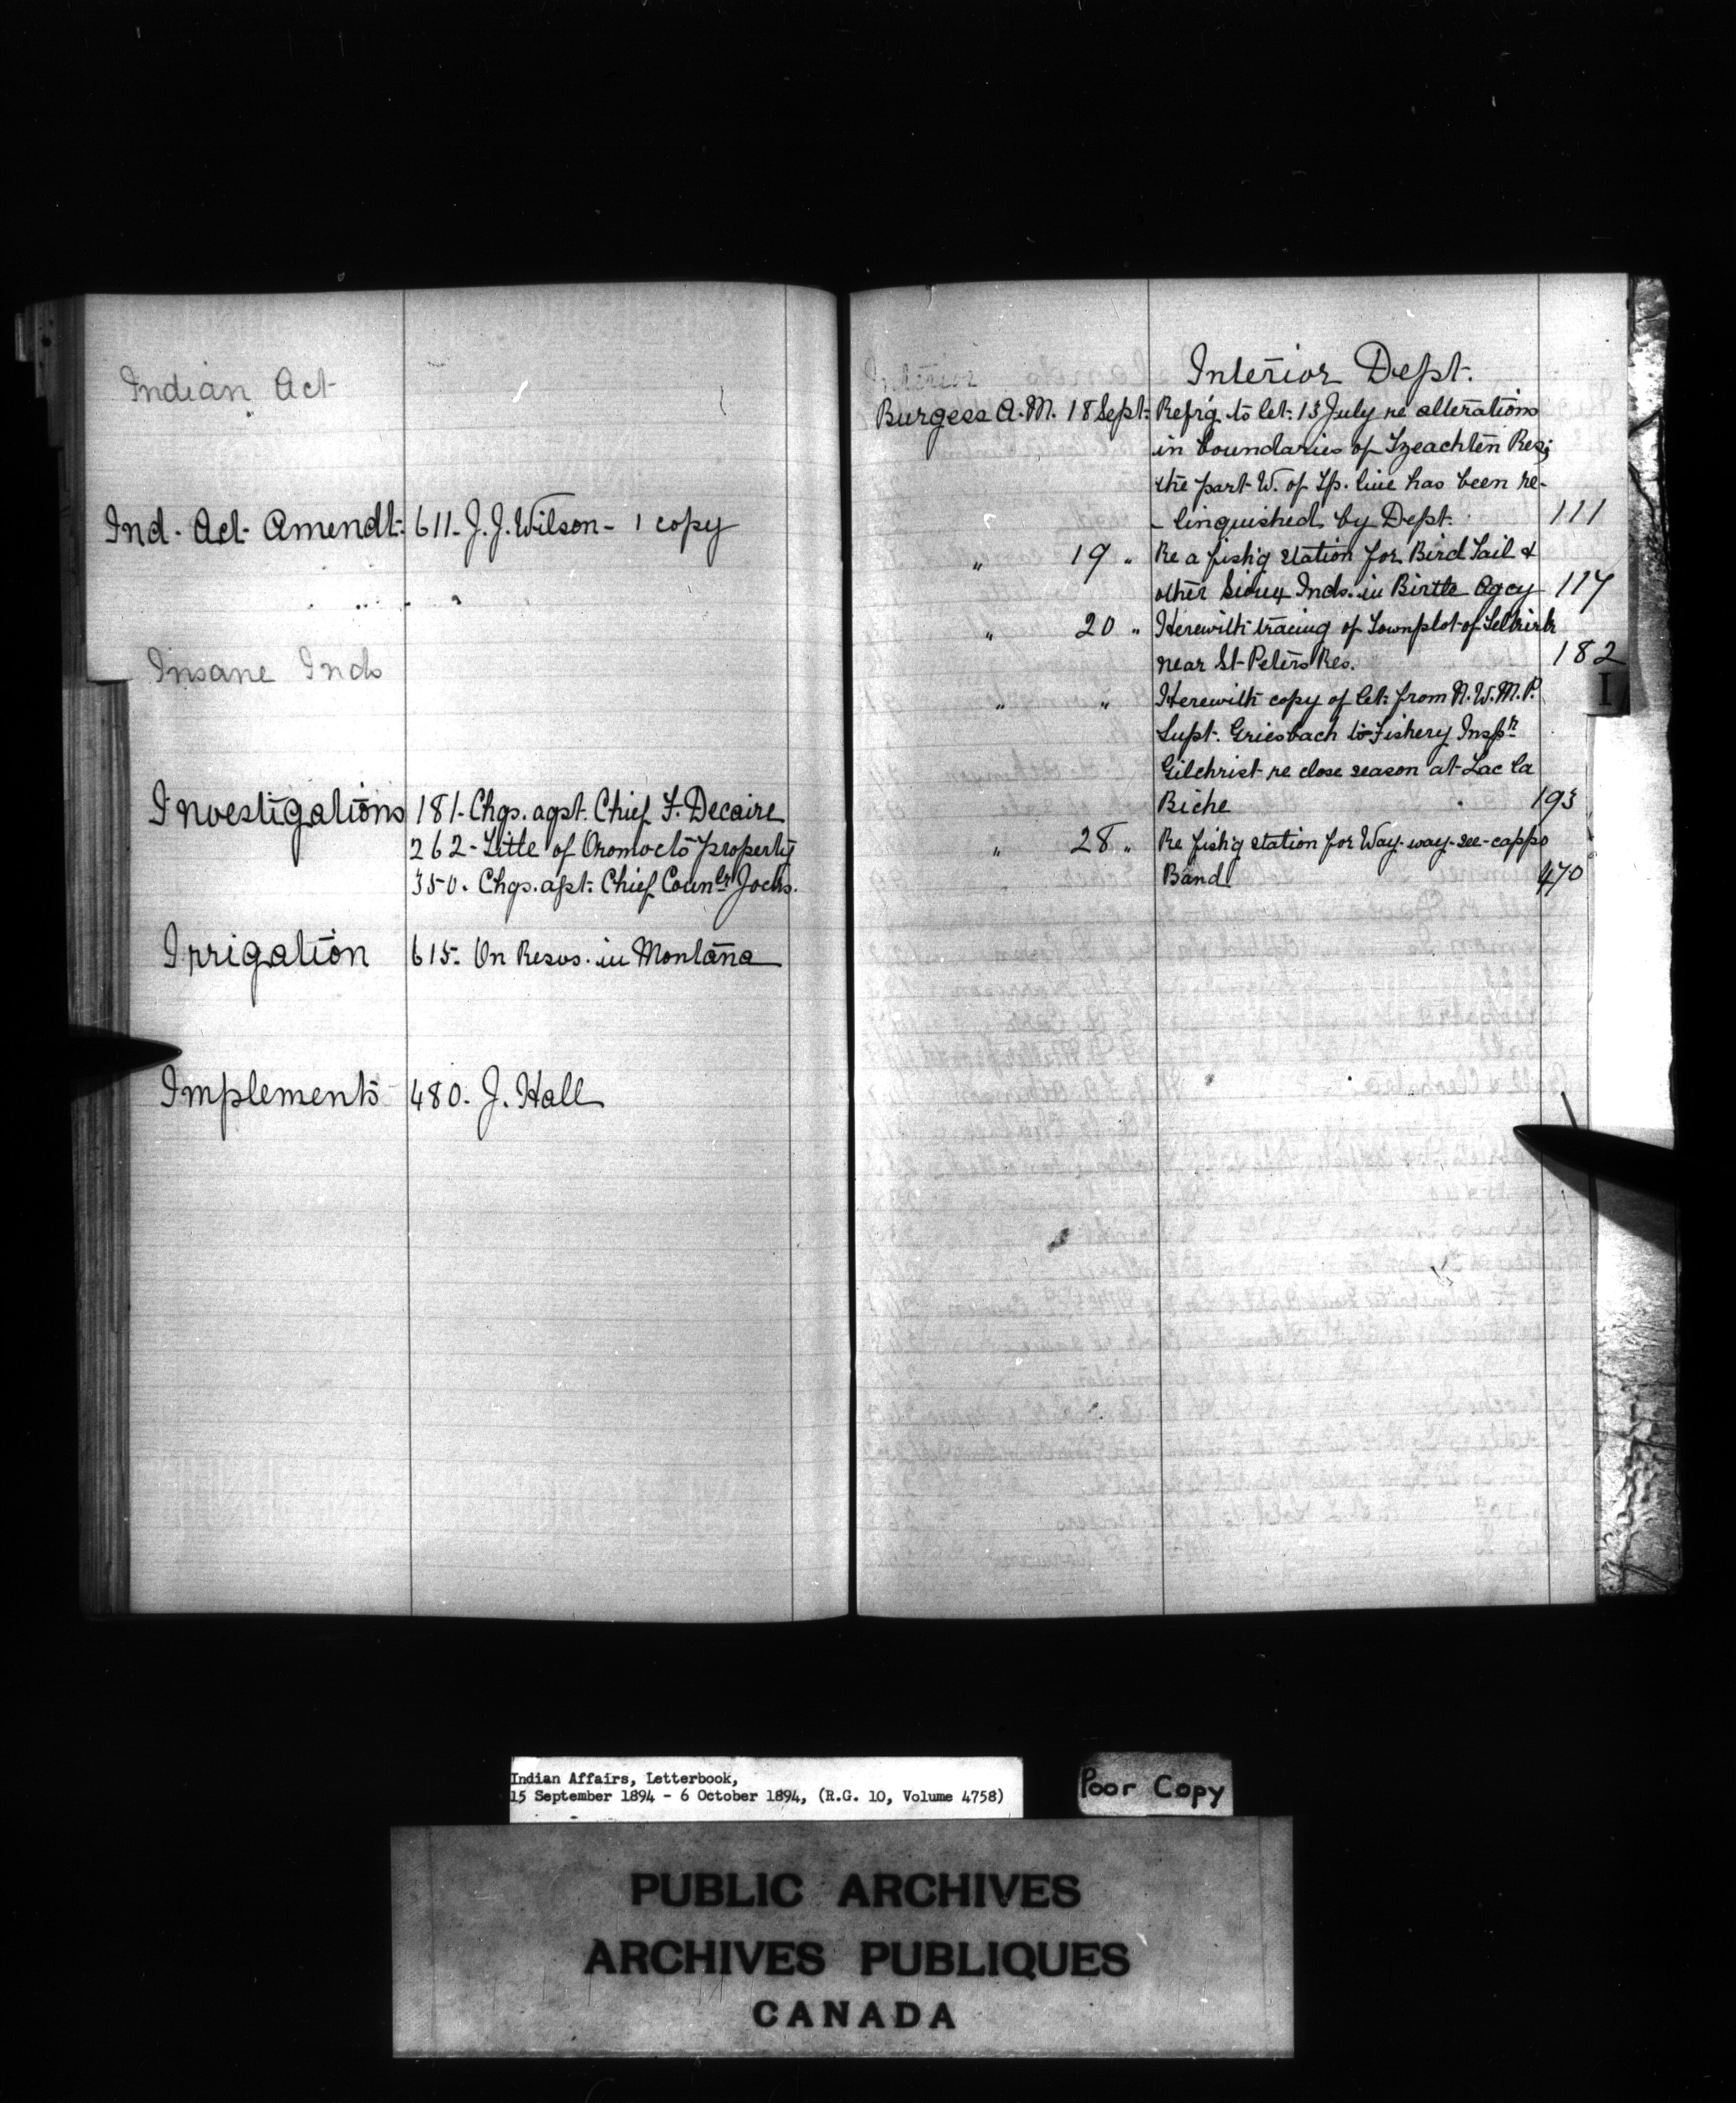 Indian Act
Ind. Act Amendt. 611. J. J. Wilson - 1 copy
Insane Inds
Investigations 181. Chgs. agst. Chief F. Decaire
262. Title of Oromocto property
350. Chgs. agst. Chief Counlr Jocks.
Irrigation 615. On Resvs. in Montana
Implements 480. J. Hall
Interior
Interior Dept.
Burgess A. M. 18 Sept. Refr'g to let. 13 July re alterations
in boundaries of Tzeachten Res;
the part W. of Tp. line has been re-
- linquished by Dept. 111
" 19 " Re a fish'g station for Bird Tail &
other Sioux Inds. in Birtle Agcy 117
" 20 " Herewith tracing of Townplot of Selkirk
near St Peters Res. 182
" " Herewith copy of let. from N. W. M. P.
Supt. Griesbach to Fishery Inspr
Gilchrist re close season at Lac la
Biche 193
" 28 " Re fish'g station for Way-way-see-cappo
Band 470
I
Indian Affairs, Letterbook,
15 September 1894 - 6 October 1894, (R.G. 10, Volume 4758)
Poor Copy
PUBLIC ARCHIVES
ARCHIVES PUBLIQUES
CANADA